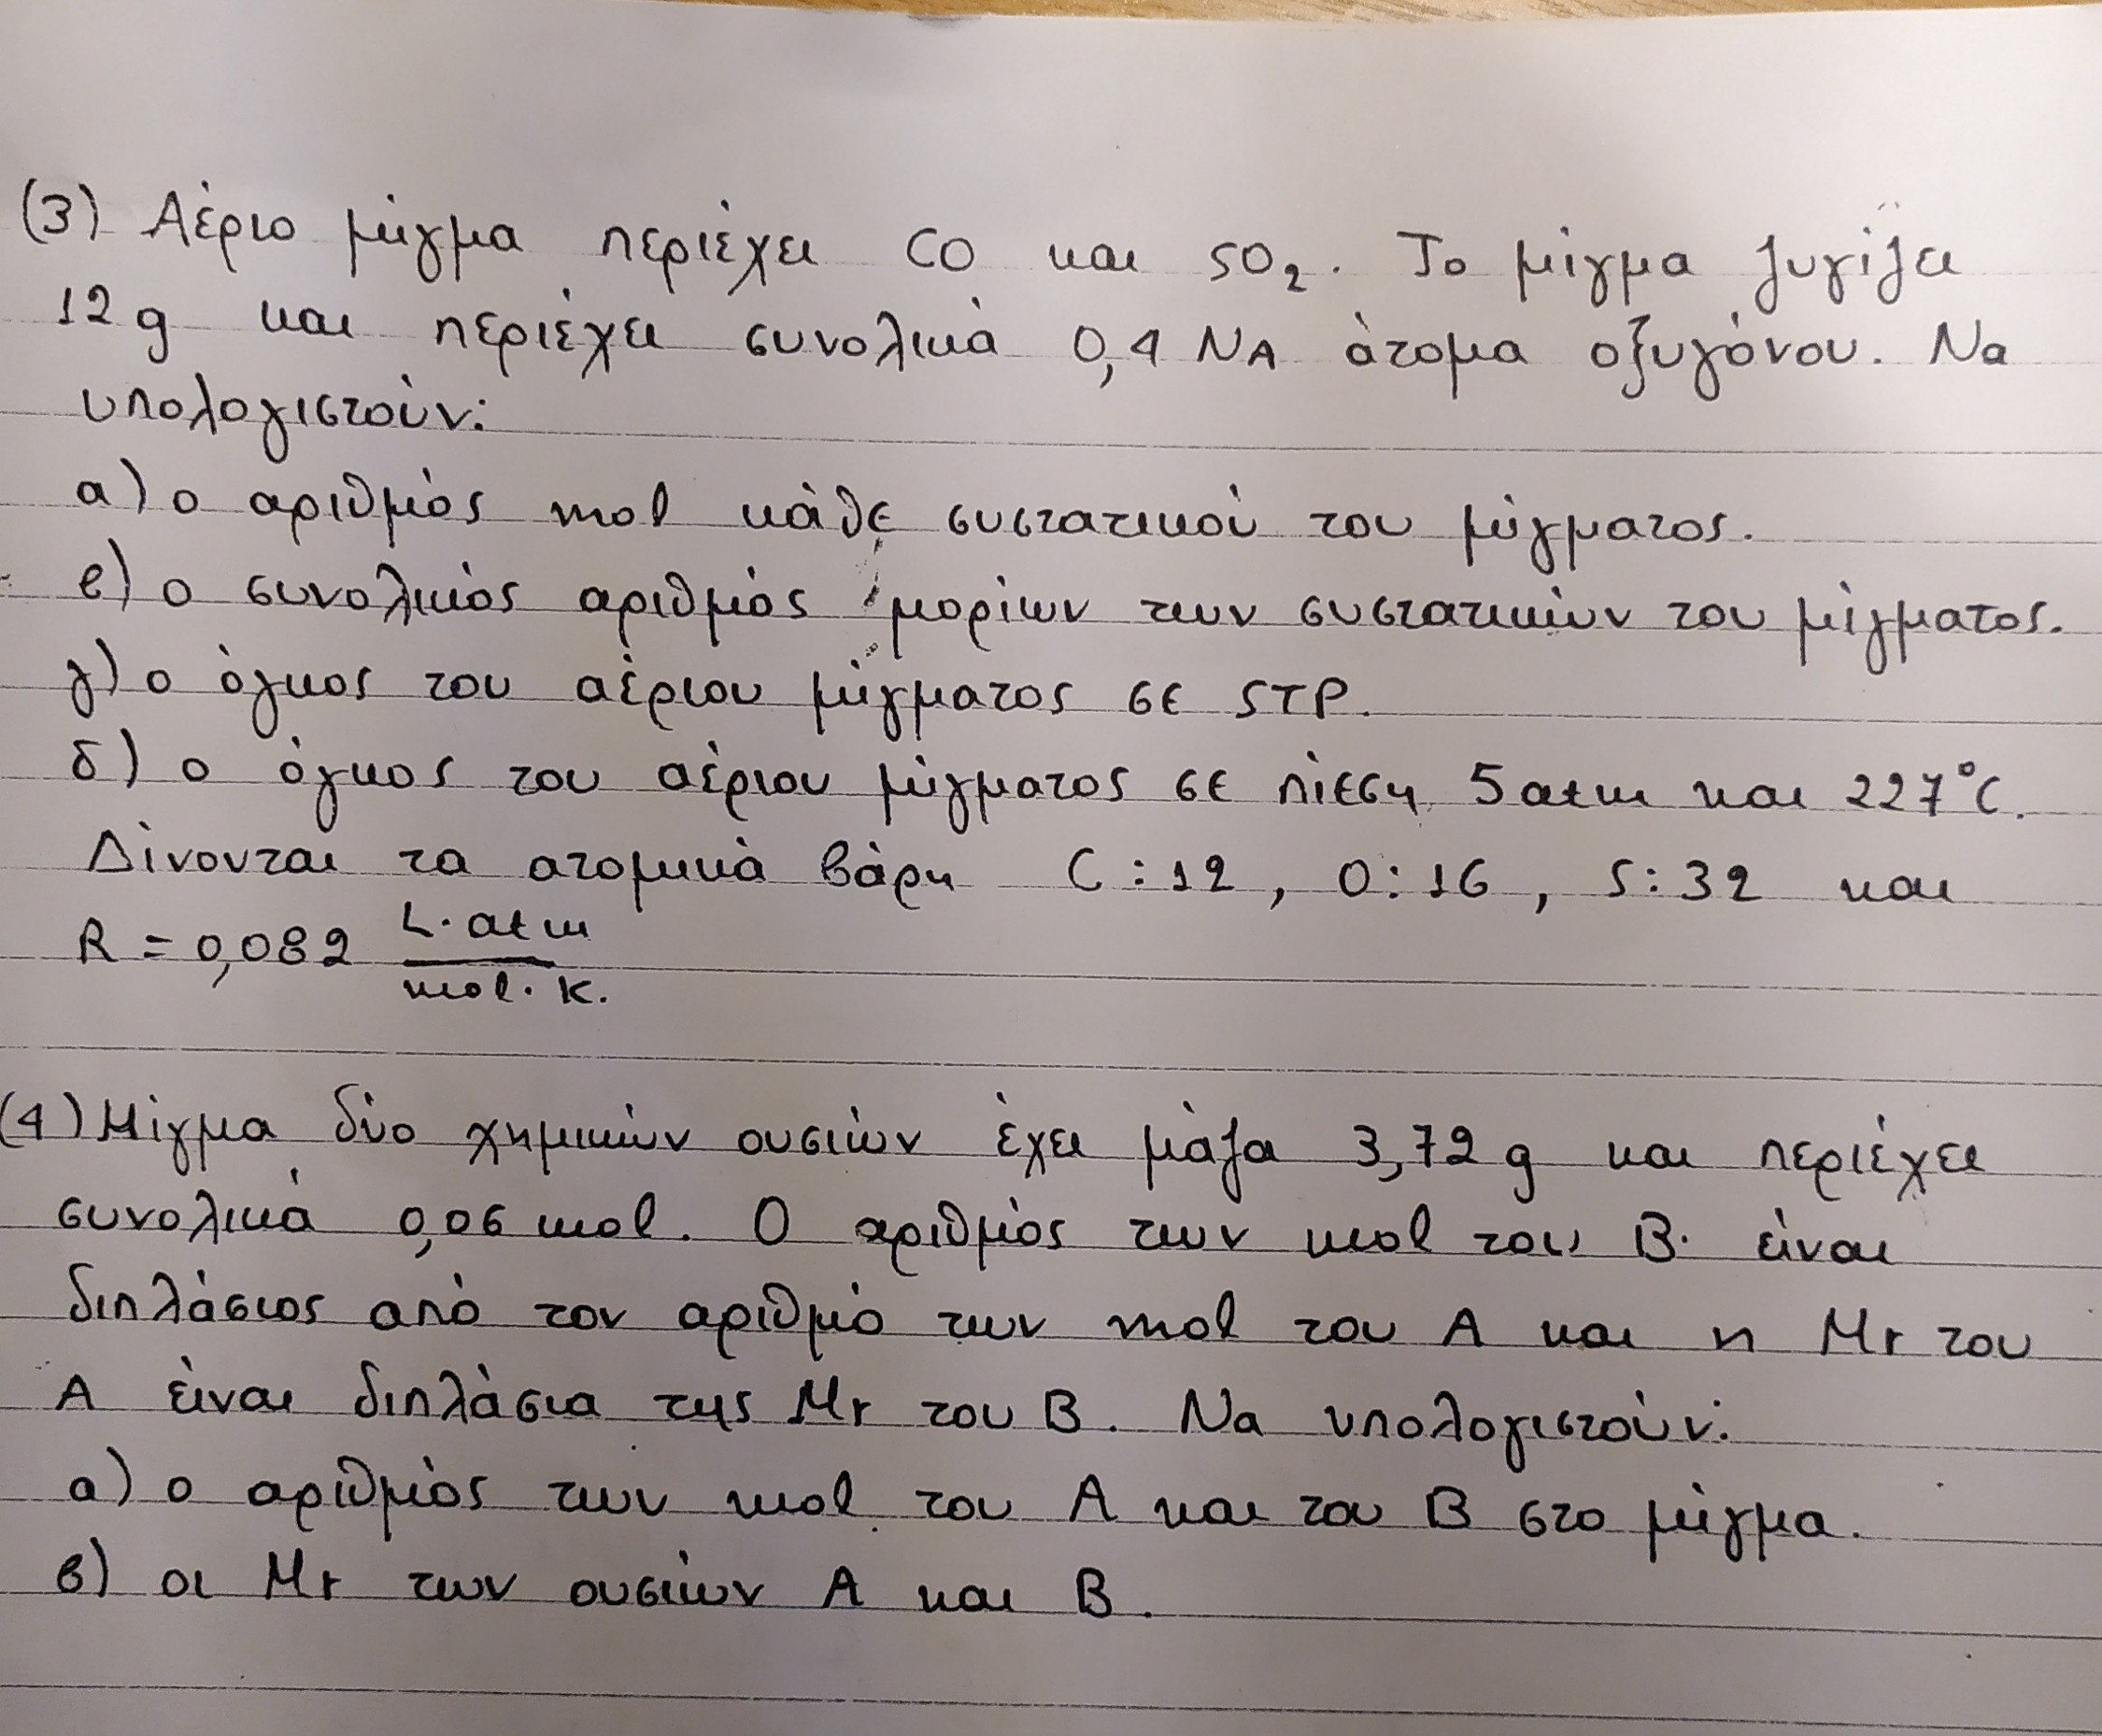 (3) Αέριο μίγμα περιέχει CO και SO₂. Το μίγμα ζυγίζει
12 g και περιέχει συνολικά 0,4 NA άτομα οξυγόνου. Να
υπολογιστούν:
α) ο αριθμός mol κάθε συστατικού του μίγματος.
β) ο συνολικός αριθμός μορίων των συστατικών του μίγματος.
γ) ο όγκος του αέριου μίγματος σε STP.
δ) ο όγκος του αέριου μίγματος σε πίεση 5 atm και 227°C.
Δίνονται τα ατομικά βάρη C : 12 , O : 16 , S : 32 και
R = 0,082 L·atm / mol·K.
(4) Μίγμα δύο χημικών ουσιών έχει μάζα 3,72 g και περιέχει
συνολικά 0,06 mol. Ο αριθμός των mol του Β. είναι
διπλάσιος από τον αριθμό των mol του Α και η Mr του
Α είναι διπλάσια της Mr του Β. Να υπολογιστούν:
α) ο αριθμός των mol του Α και του Β στο μίγμα.
β) οι Mr των ουσιών Α και Β.